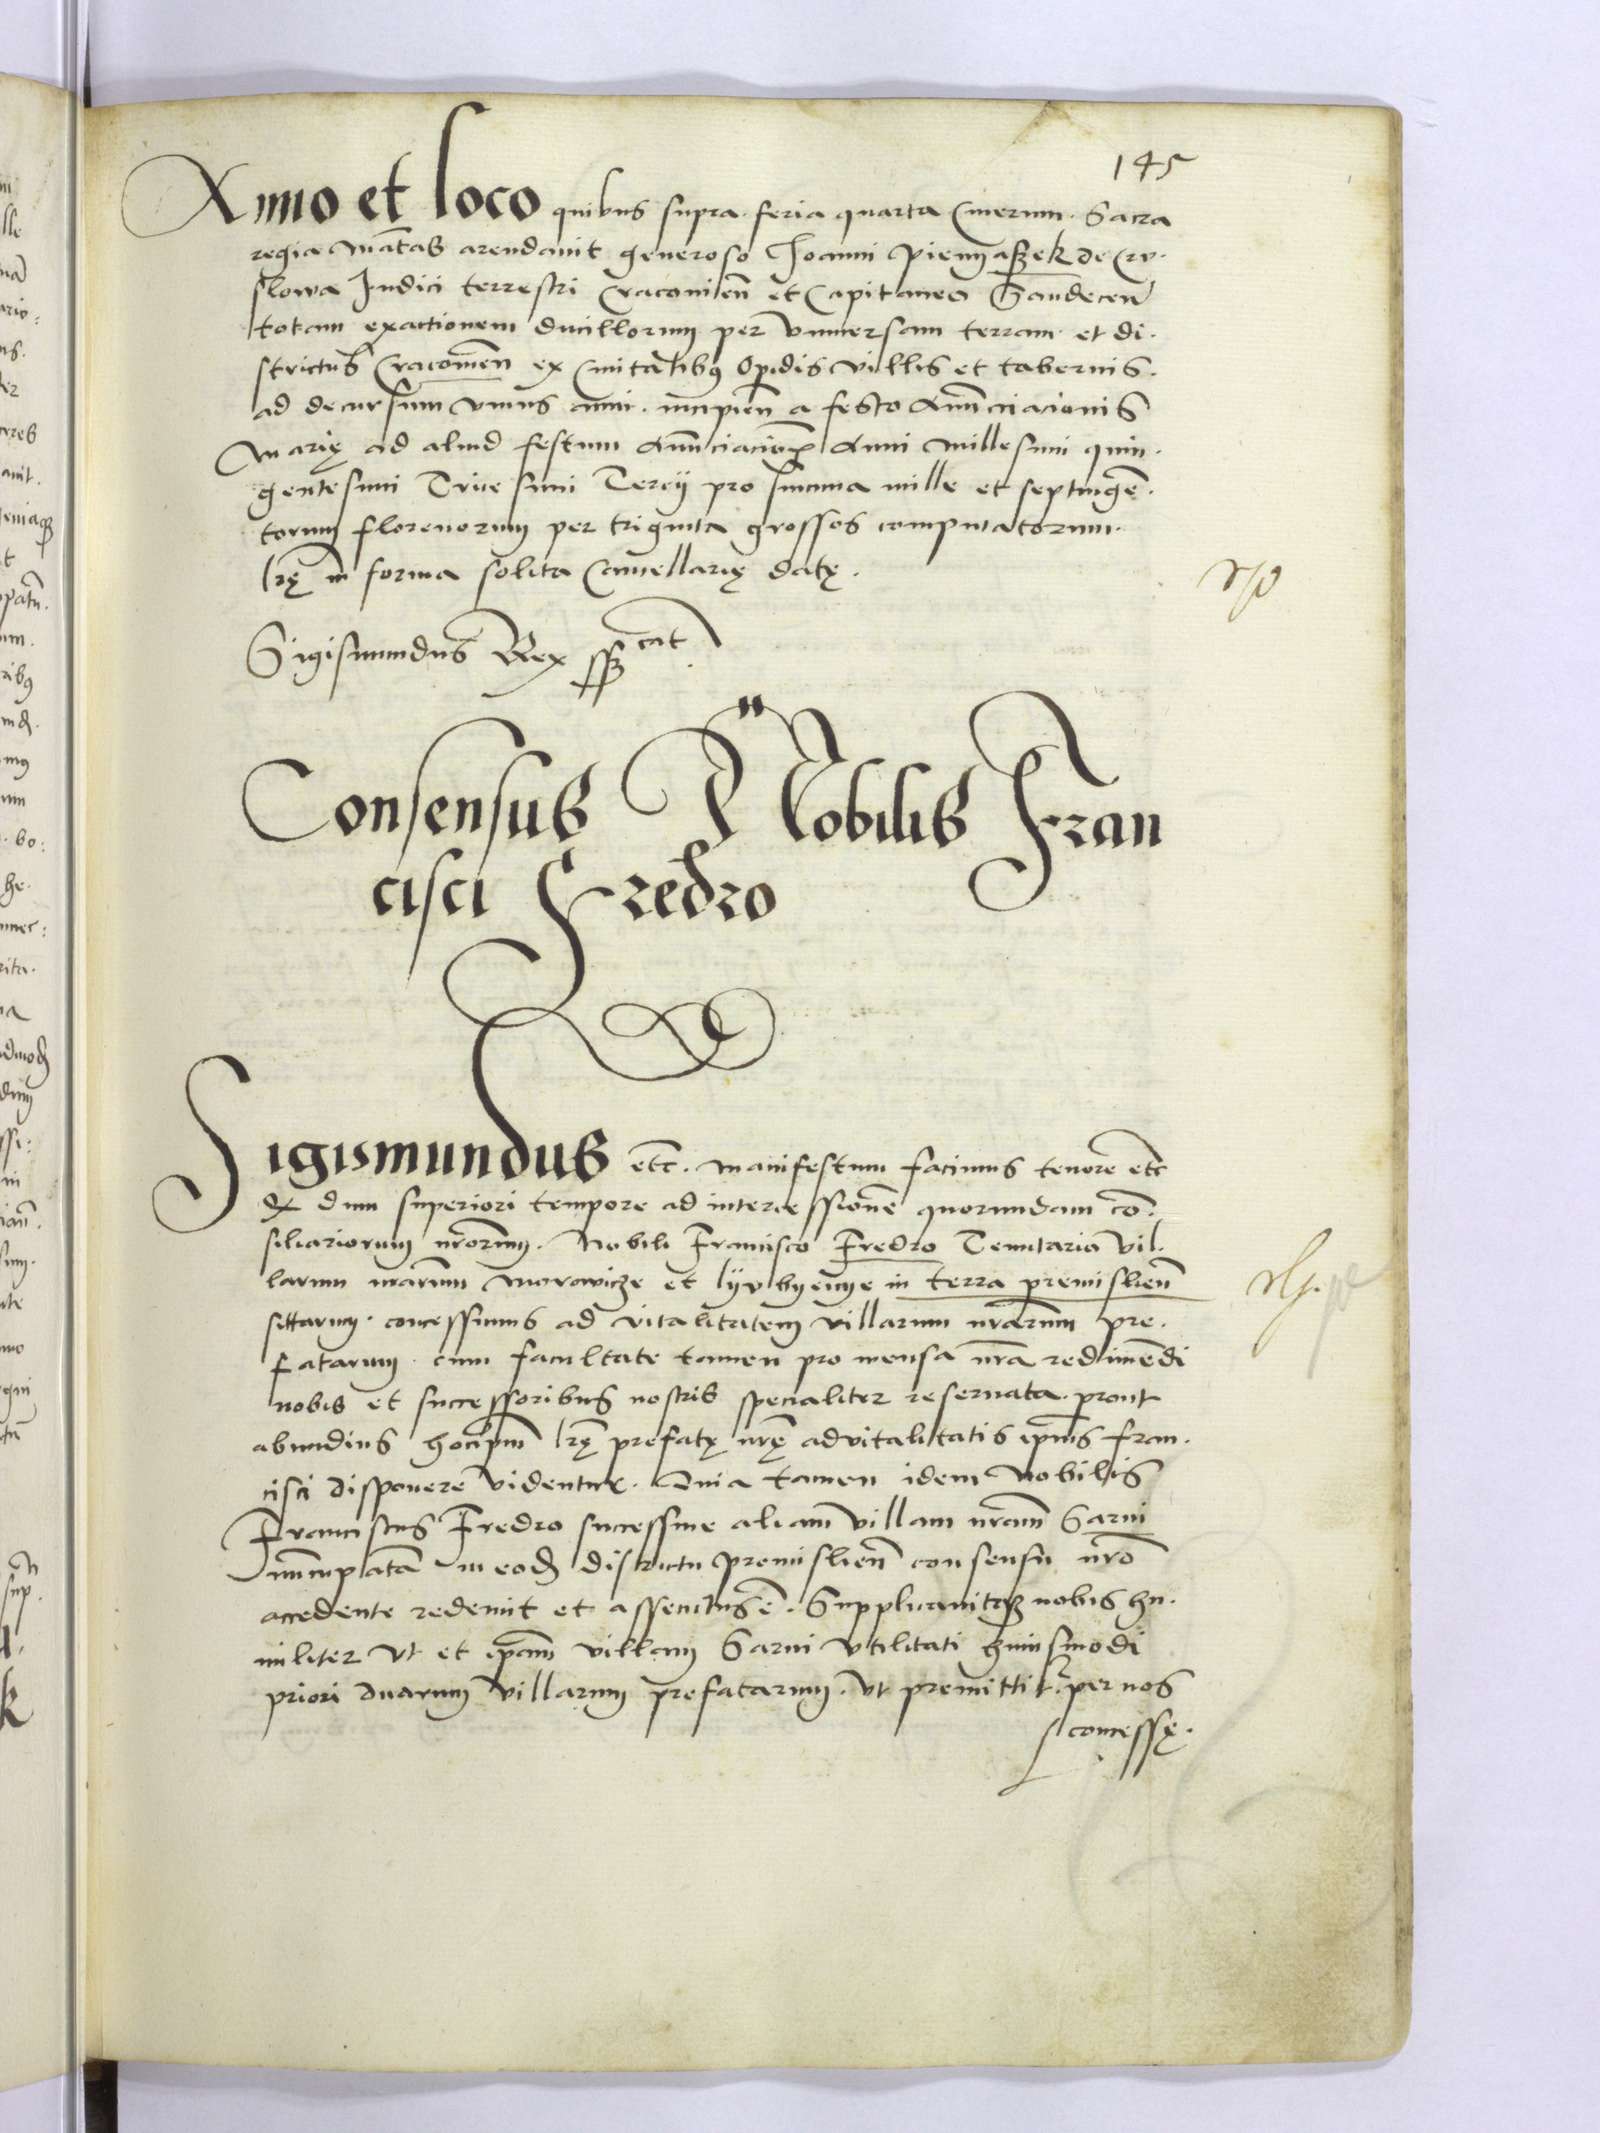 145
Anno et loco quibus supra. feria quarta Cinerum. Sacra
regia Mtas arendavit generoso Joanni Pieniaszek de Cru.
slowa Judici terrestri Cracovien et Capitaneo Sandecen
totam exactionem ducillorum per Universam terram et di.
strictus Cracovien ex Civitatibus Opidis Villis et tabernis.
ad decursum Unius anni. incipien a festo Annunciacionis
Marię ad aliud festum Annunciacionis Anni Millesimi quin.
gentesimi Tricesimi Tercij pro summa mille et septingen.
torum florenorum per triginta grossos computatorum.
lrę in forma solita Cancellarię datę.
Sigismundus Rex sszcit
Consensus Nobilis Fran
cisci Fredro
Sigismundus etc. Manifestum facimus tenore etc
Q dum superiori tempore ad intercessione quorundam co.
siliariorum nrorum. Nobili Francisco Fredro Tenutario Vil.
larum nrarum Morawicze et in terra premislien
sittarum. concessimus ad vitalitatem villarum nrarum pre.
fatarum. cum facultate tamen pro mensa nra redimendi
nobis et successoribus nostris specialiter reservata. prout
abundius hocipm lrę prefatę nrę advitalitatis ipius Fran.
cisci disponere Videntur. Quia tamen idem Nobilis
Franciscus Fredro successive aliam villam nram Sarni
nuncupata in eod districtu premislien consensu nro
accedente redemit et assecutus e. Supplicavitqz nobis hu.
militer Ut et ipam villam Sarni Utilitati huiusmodi
priori duarum Villarum prefatarum. Ut premittitur. per nos
concessę.